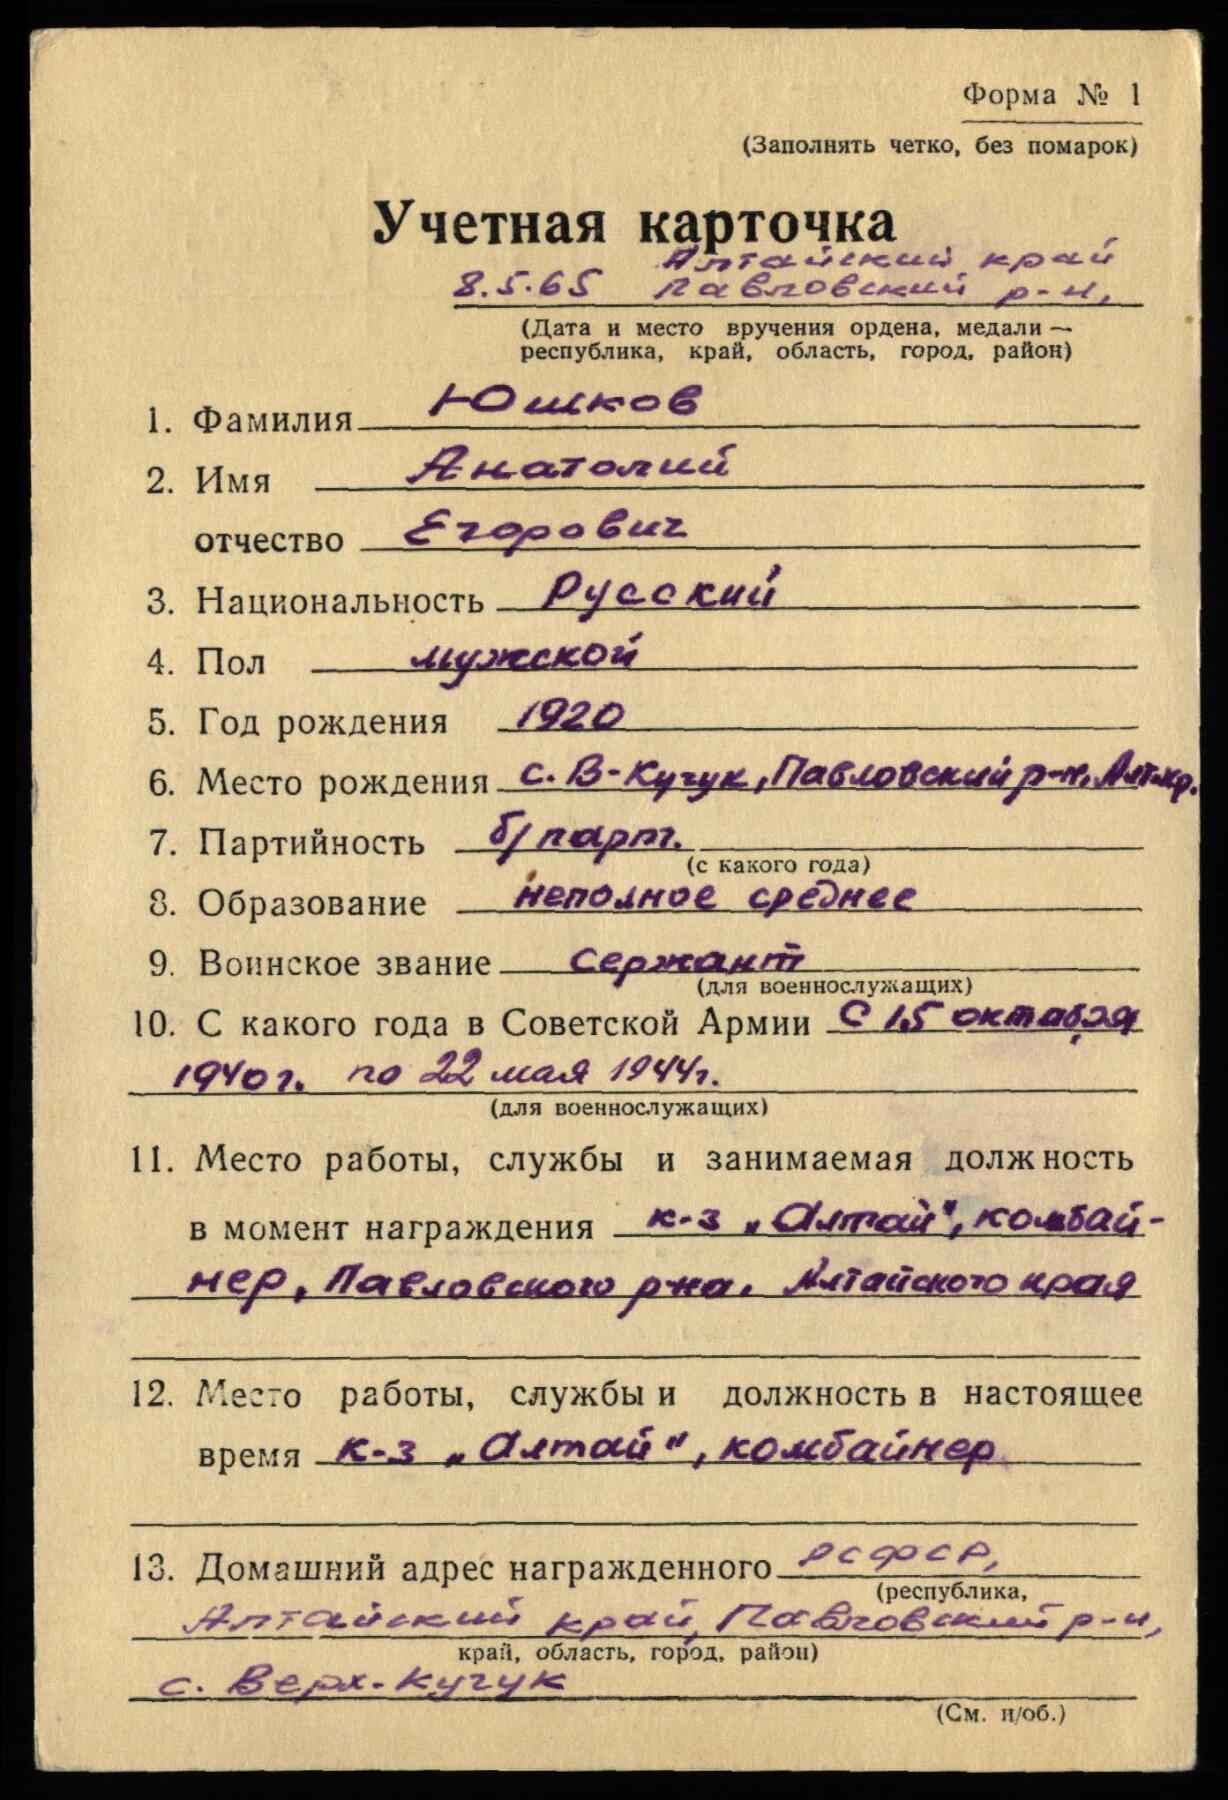 Форма № 1
(Заполнять четко, без помарок)
Учетная карточка
Алтайский край
8.5.65 Павловский р-н,
(Дата и место вручения ордена, медали —
республика, край, область, город, район)
1. Фамилия Юшков
2. Имя Анатолий
отчество Егорович
3. Национальность Русский
4. Пол мужской
5. Год рождения 1920
6. Место рождения с. В-Кучук, Павловский р-н, Алт.кр.
7. Партийность б/парт.
(с какого года)
8. Образование неполное среднее
9. Воинское звание Сержант
(для военнослужащих)
10. С какого года в Советской Армии С 15 октября
1940г. по 22 мая 1944г.
(для военнослужащих)
11. Место работы, службы и занимаемая должность
в момент награждения к-з „Алтай", комбай-
нер, Павловского р-на. Алтайского края
12. Место работы, службы и должность в настоящее
время к-з „Алтай", комбайнер
13. Домашний адрес награжденного РСФСР,
(республика,
Алтайский край, Павловский р-н,
край, область, город, район)
с. Верх-Кучук
(См. н/об.)